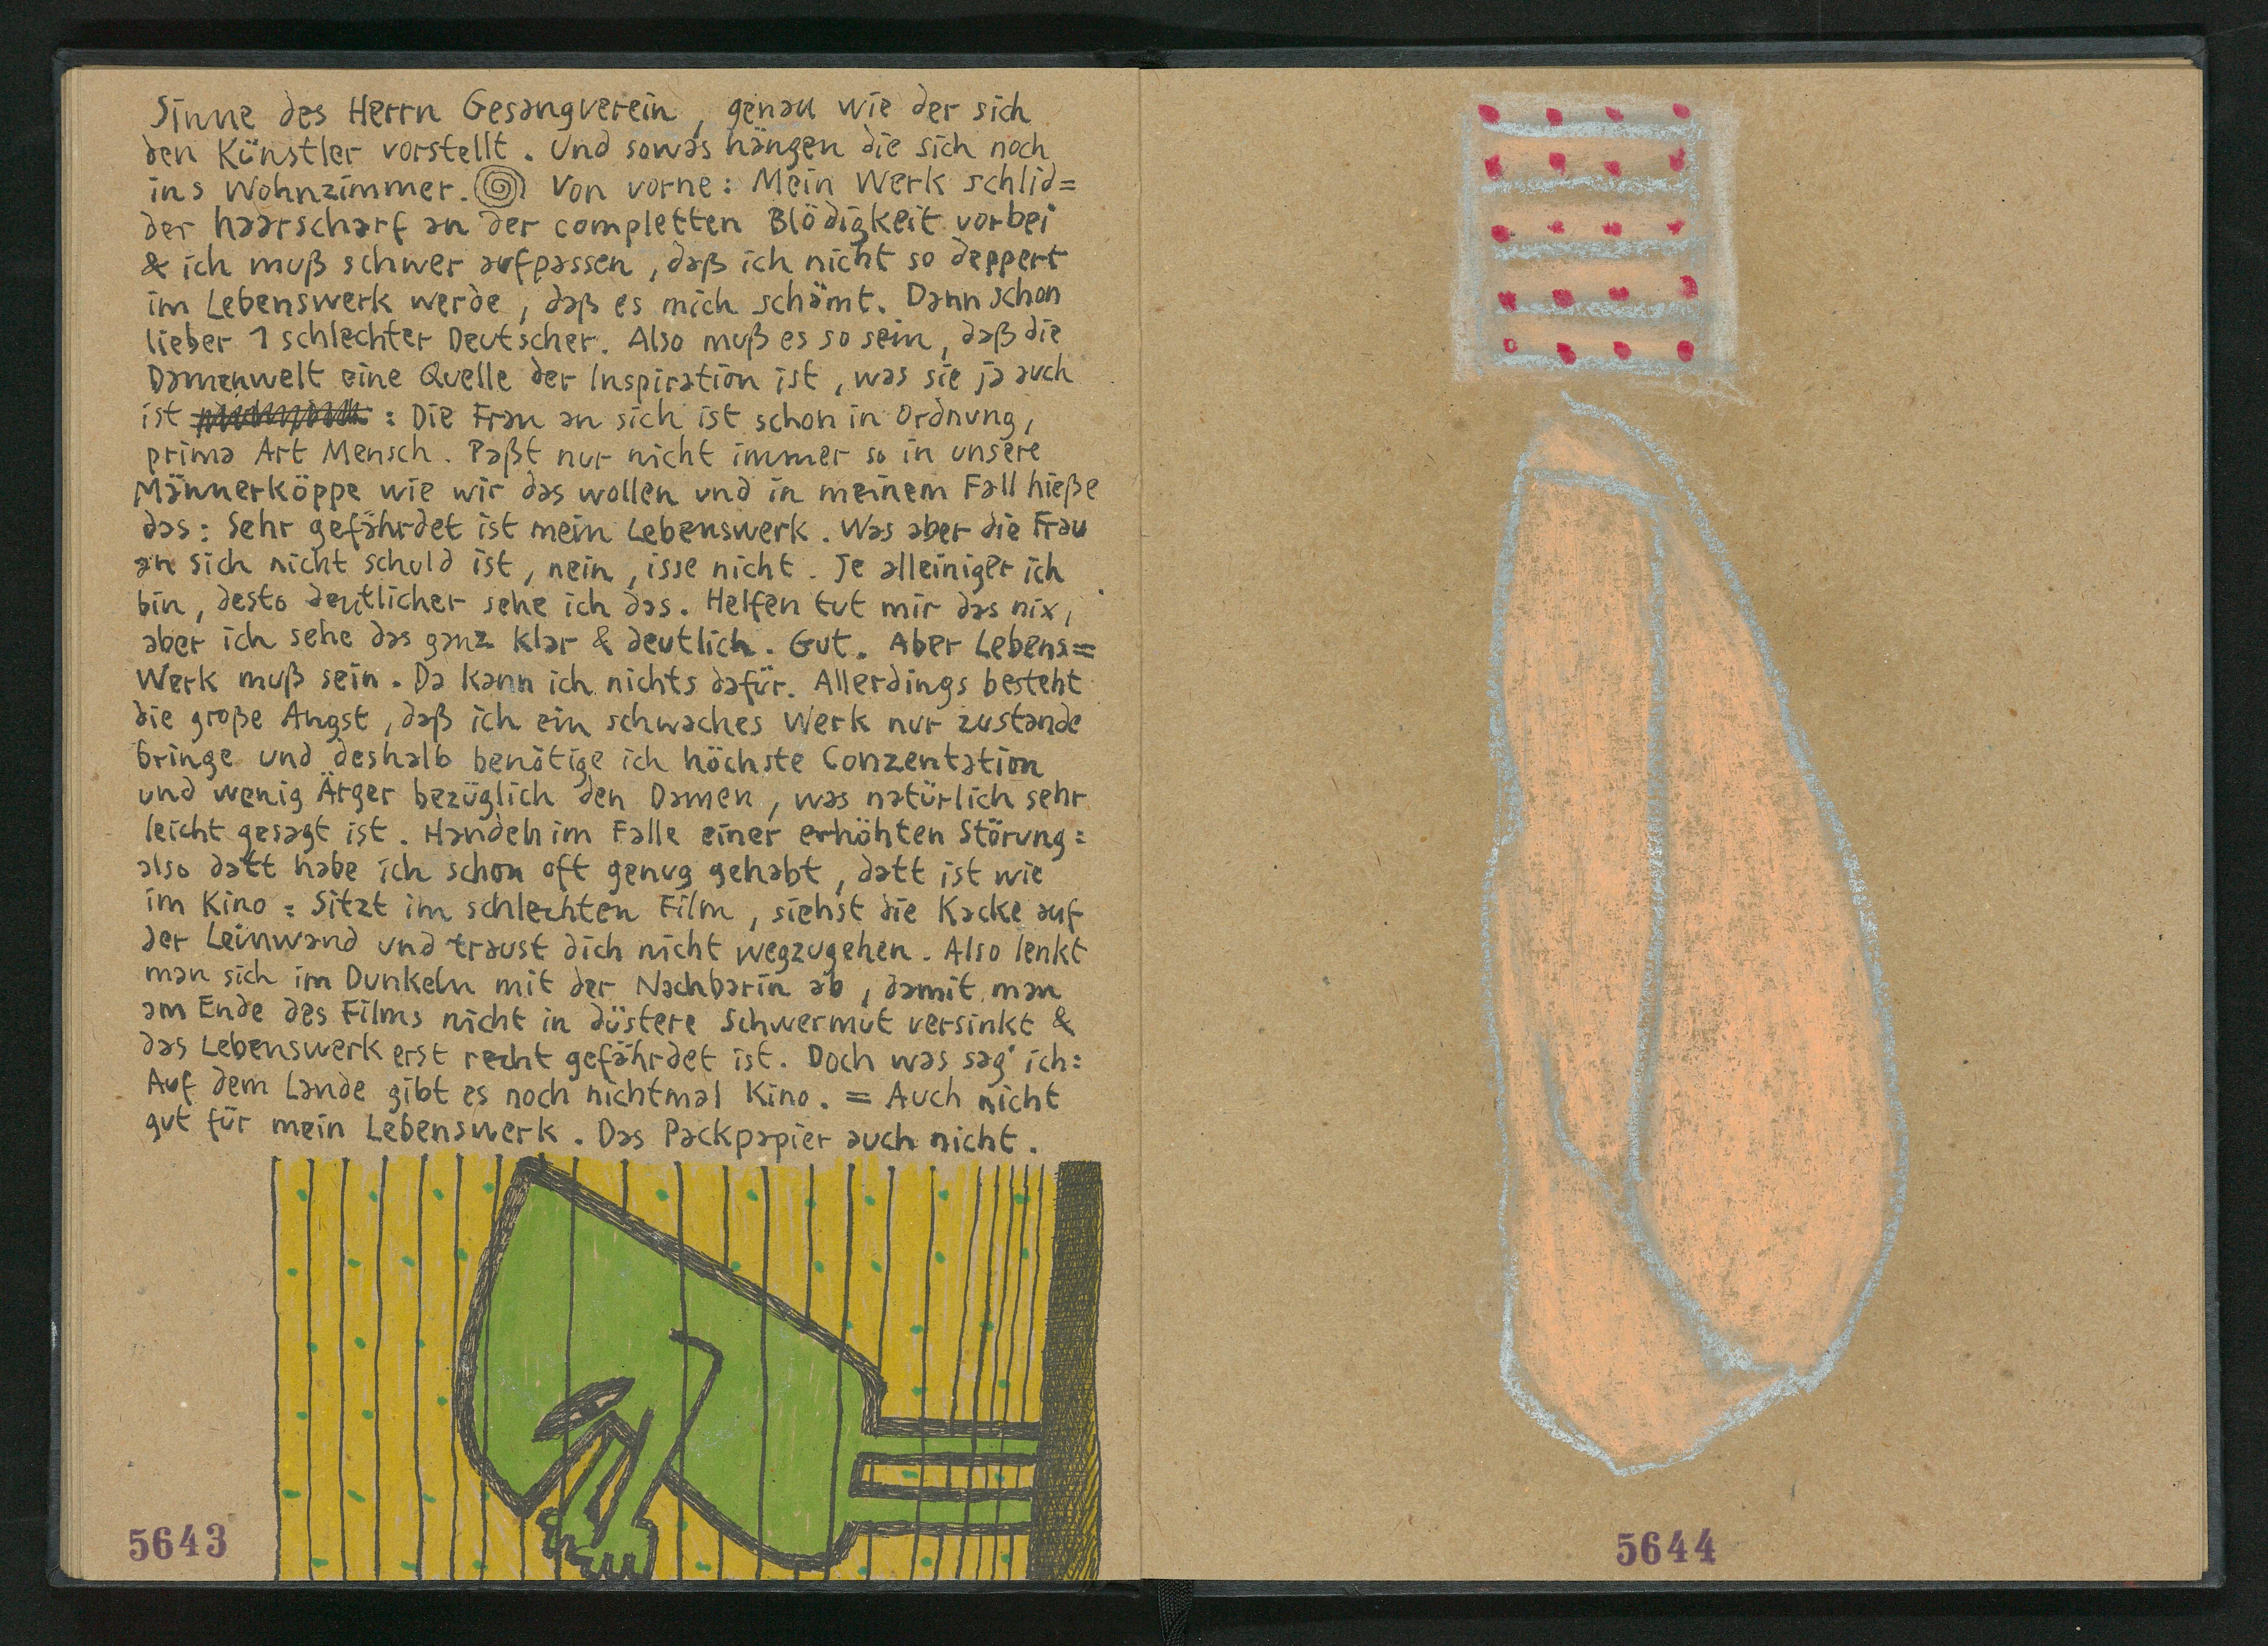 Sinne des Herrn Gesangverein, genau wie der sich
den Künstler vorstellt. Und sowas hängen die sich noch
ins Wohnzimmer. Von vorne: Mein Werk schlid=
der haarscharf an der completten Blödigkeit vorbei
& ich muß schwer aufpassen, daß ich nicht so deppert
im Lebenswerk werde, daß es mich schämt. Dann schon
lieber 1 schlechter Deutscher. Also muß es so sein, daß die
Damenwelt eine Quelle der Inspiration ist, was sie ja auch
ist : Die Frau an sich ist schon in Ordnung,
prima Art Mensch. Paßt nur nicht immer so in unsere
Männerköppe wie wir das wollen und in meinem Fall hieße
das: Sehr gefährdet ist mein Lebenswerk. Was aber die Frau
an sich nicht schuld ist, nein, isse nicht. Je alleiniger ich
bin, desto deutlicher sehe ich das. Helfen tut mir das nix,
aber ich sehe das ganz klar & deutlich. Gut. Aber Lebens=
Werk muß sein. Da kann ich nichts dafür. Allerdings besteht
die große Angst, daß ich ein schwaches Werk nur zustande
bringe und deshalb benötige ich höchste Conzentation
und wenig Ärger bezüglich den Damen, was natürlich sehr
leicht gesagt ist. Handeln im Falle einer erhöhten Störung:
also datt habe ich schon oft genug gehabt, datt ist wie
im Kino = Sitzt im schlechten Film, siehst die Kacke auf
der Leinwand und traust dich nicht wegzugehen. Also lenkt
man sich im Dunkeln mit der Nachbarin ab, damit man
am Ende des Films nicht in düstere Schwermut versinkt &
das Lebenswerk erst recht gefährdet ist. Doch was sag' ich:
Auf dem Lande gibt es noch nichtmal Kino. = Auch nicht
gut für mein Lebenswerk. Das Packpapier auch nicht.
5643
5644